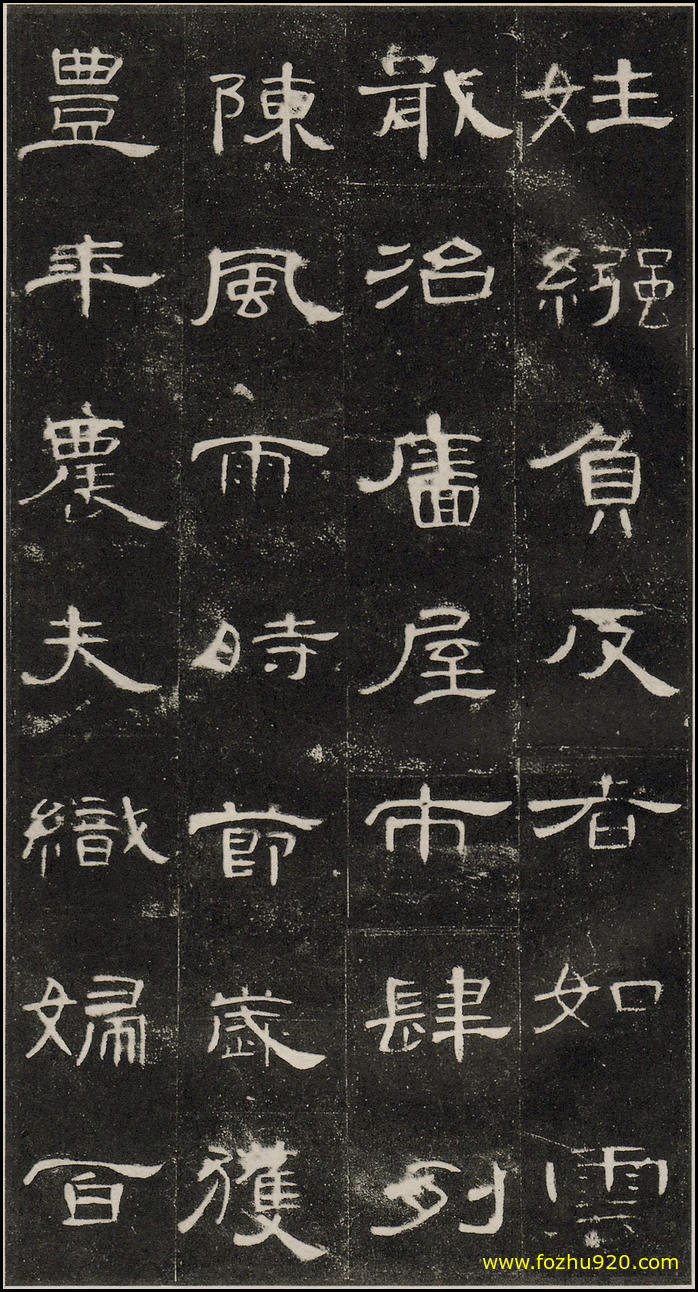 姓繦負反者如雲
戢治廧屋市肆列
陳風雨時節歲獲
豊年農夫織婦百
www.fozhu920.com